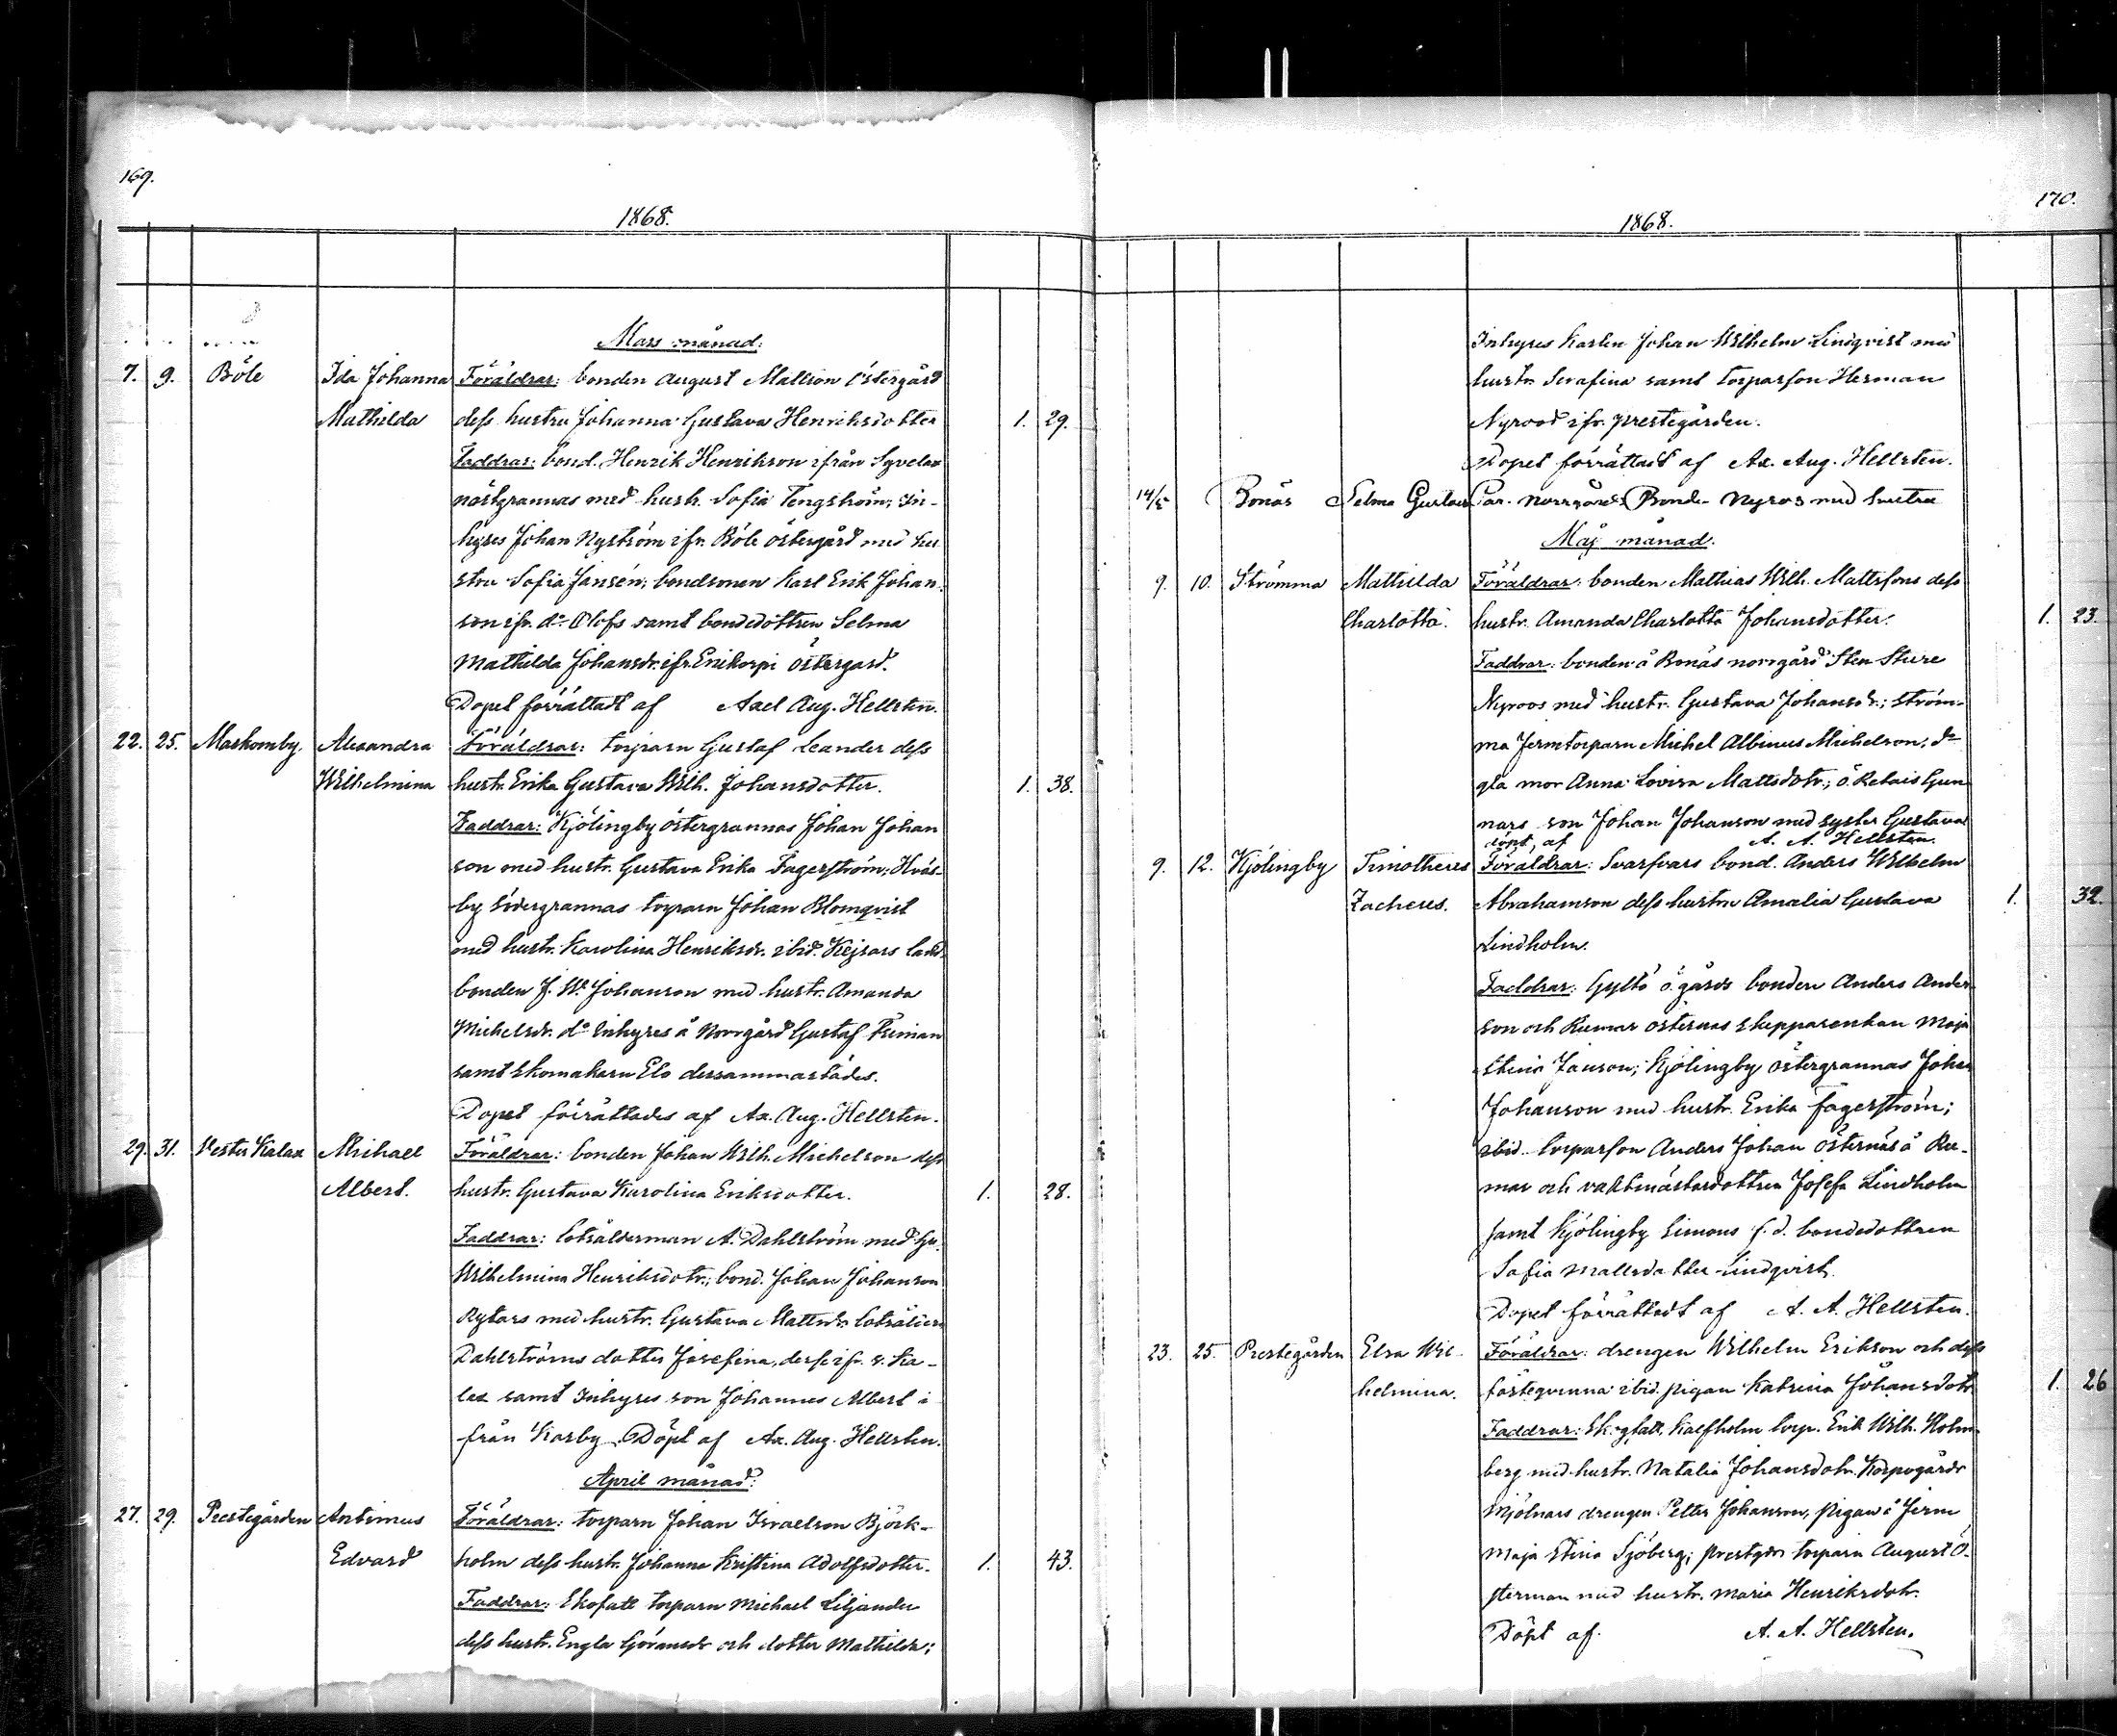 169.
1868.
Mars månad:
7. 9. Böle Ida Johanna Föräldrar: bonden August Mattson Östergård
Mathilda dess hustru Johanna Gustava Henriksdotter 1. 29.
Faddrar: bond. Henrik Henrikson ifrån Syvelax
nörtgrannas med hustr. Sofia Tengström; In-
hyses Johan Nyström ifr. Böle östergård med hu
stru Sofia Jansén; bondsonen Karl Erik Johan-
son ifr. d:o Olofs samt bondedottren Selma
Mathilda Johansdr. ifr. Enikorpi östergård.
Dopet förrättadt af Axel Aug. Hellsten.
22. 25. Maskomby. Alexandra Föräldrar: torparn Gustaf Leander dess
Wilhelmina hustr. Erika Gustava Wilh. Johansdotter. 1. 38.
Faddrar: Kjölingby östergrannas Johan Johan
son med hustr. Gustava Erika Fagerström; Hväs-
by södergrannas torparn Johan Blomqvist
med hustr. Karolina Henriksdr. ibid. Kejsars land
bonden J. W. Johanson med hustr. Amanda
Michelsdr. d:o Inhyses å Norrgård Gustaf
samt skomakarn Elo dersammastädes.
Dopet förrättades af Ax. Aug. Hellsten.
29. 31. Vester Kalax Michael Föräldrar: bonden Johan Wilh. Michelson dess
Albert. hustr. Gustava Karolina Eriksdotter. 1. 28.
Faddrar: lotsålderman A. Dahlström med hu.
Wilhelmina Henriksdotr.; bond. Johan Johanson
Rytars med hustr. Gustava Mattsdr. lotsålderm
Dahlströms dotter Josefina, desse ifr. v. Ka-
lax samt Inhyses son Johannes Albert i
från Korsby. Döpt af Ax. Aug. Hellsten.
April månad:
27. 29. Prestegården Antimus Föräldrar: torparn Johan Israelson Björk-
Edvard holm dess hustr. Johanna Kristina Adolfsdotter. 1. 43.
Faddrar: Skofatt torparn Michael Liljander
dess hustr. Engla Göransdr och dotter Mathilda;
170.
1868.
Inhyses Karlen Johan Wilhelm Lindqvist med
hustr. Serafina samt torparson Herman
Nyrood ifr. prestegården.
Dopet förrättadt af Ax. Aug. Hellsten.
14/5 Bonäs Selma Gustava Par. norrgårds Bonde Nyros med hustru
Maj månad.
9. 10. Strömma Mathilda Föräldrar: bonden Mathias Wilh. Mattsons dess
Charlotta. hustr. Amanda Charlotta Johansdotter. 1. 23.
Faddrar: bonden å Bonäs norrgård Sten Sture
Nyroos med hustr. Gustava Johansdr.; Ström-
ma Jermtorparn Michel Albinus Michelson, d:o
gla mor Anna Lovisa Mattsdotr.; ö. Retais Gun
nars son Johan Johanson med syster Gustava
döpt af A. A. Hellsten.
9. 12. Kjölingby Timotheus Föräldrar: Svarfvars bond. Anders Wilhelm
Zacheus. Abrahamson dess hustru Amalia Gustava 1. 32.
Lindholm.
Faddrar: Gyltö ö. gårds bonden Anders Ander
son och Rumar östernäs skepparenkan Maja
Stina Janson; Kjölingby östergrannas Johan
Johanson med hustr. Erika Fagerström;
ibid. torparson Anders Johan Östernäs å Ru-
mar och vaktmästardottren Josefa Lindholm
samt Kjölingby Simons f. d. bondedottren
Sofia Mattsdotter Lindqvist.
Dopet förrättadt af A. A. Hellsten.
23. 25. Prestegården Elsa Wil- Föräldrar: drengen Wilhelm Erikson och dess
helmina. fästeqvinna ibid. pigan Katrina Johansdotr 1. 26
Faddrar: Skogfatt, Kalfholm torp. Erik Wilh. Holm-
berg med hustr. Natalia Johansdotr. Korpogårds
Mjölnars drengen Petter Johanson; pigan å Jerm
Maja Stina Sjöberg; prestgårds torparn August Ö-
sterman med hustr. Maria Henriksdotr.
Döpt af A. A. Hellsten.